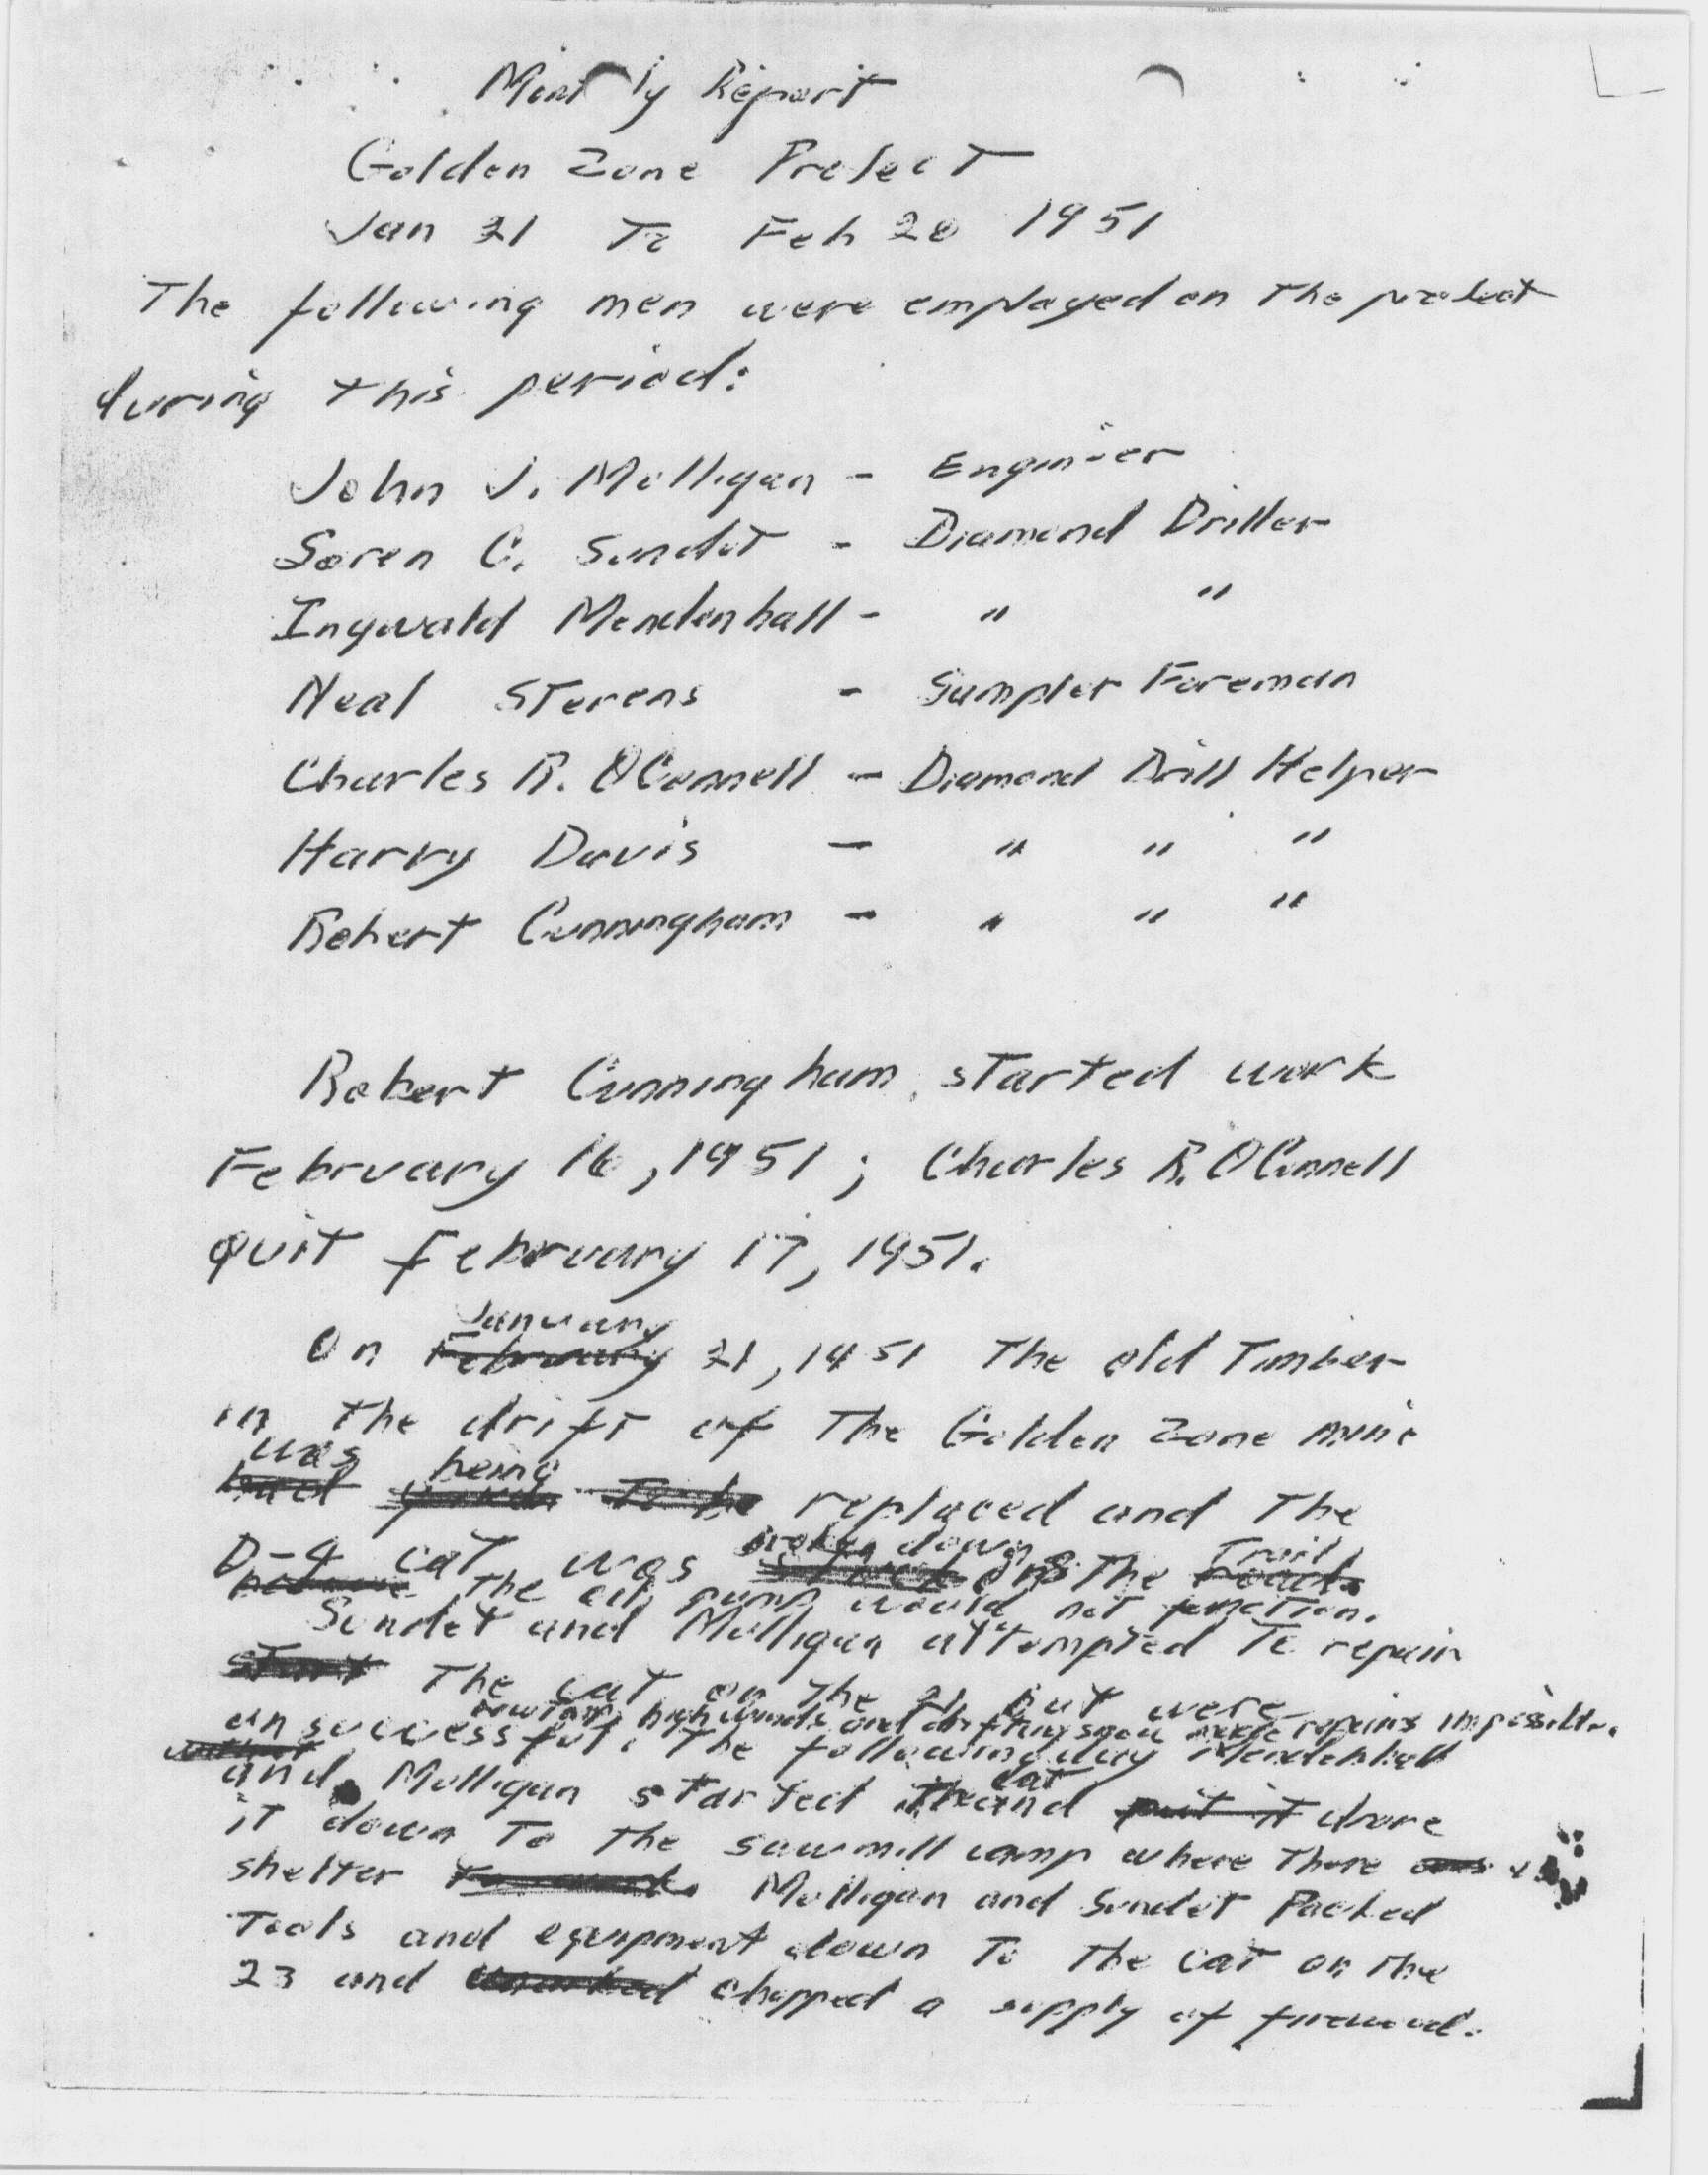 Monthly Report
Golden Zone Project
Jan 21 To Feb 20 1951
The following men were employed on the project
during this period:
John J. Mulligan - Engineer
Soren C. Sundet - Diamond Driller
Ingwald Mendenhall - " "
Neal Stevens - Sampler Foreman
Charles R. O'Connell - Diamond Drill Helper
Harry Davis - " " "
Robert Cunningham - " " "
Robert Cunningham, started work
February 16, 1951; Charles R. O'Connell
quit february 17, 1951.
January
On February 21, 1951 The old Timber
in the drift of The Golden Zone mine
was being
had to be replaced and The
broken down trail
D-4 cat was stuck on the road.
because The oil pump would not function.
Sundet and Mulligan attempted To repair
start The cat on The 21 but were
high winds and drifting snow made repairs impossible.
unsuccessful. The following day Mendenhall
cat
and Mulligan started the and put it drove
it down To The sawmill camp where there was
shelter To work. Mulligan and Sundet Packed
Tools and equipment down To The cat on The
23 and chopped a supply of firewood.